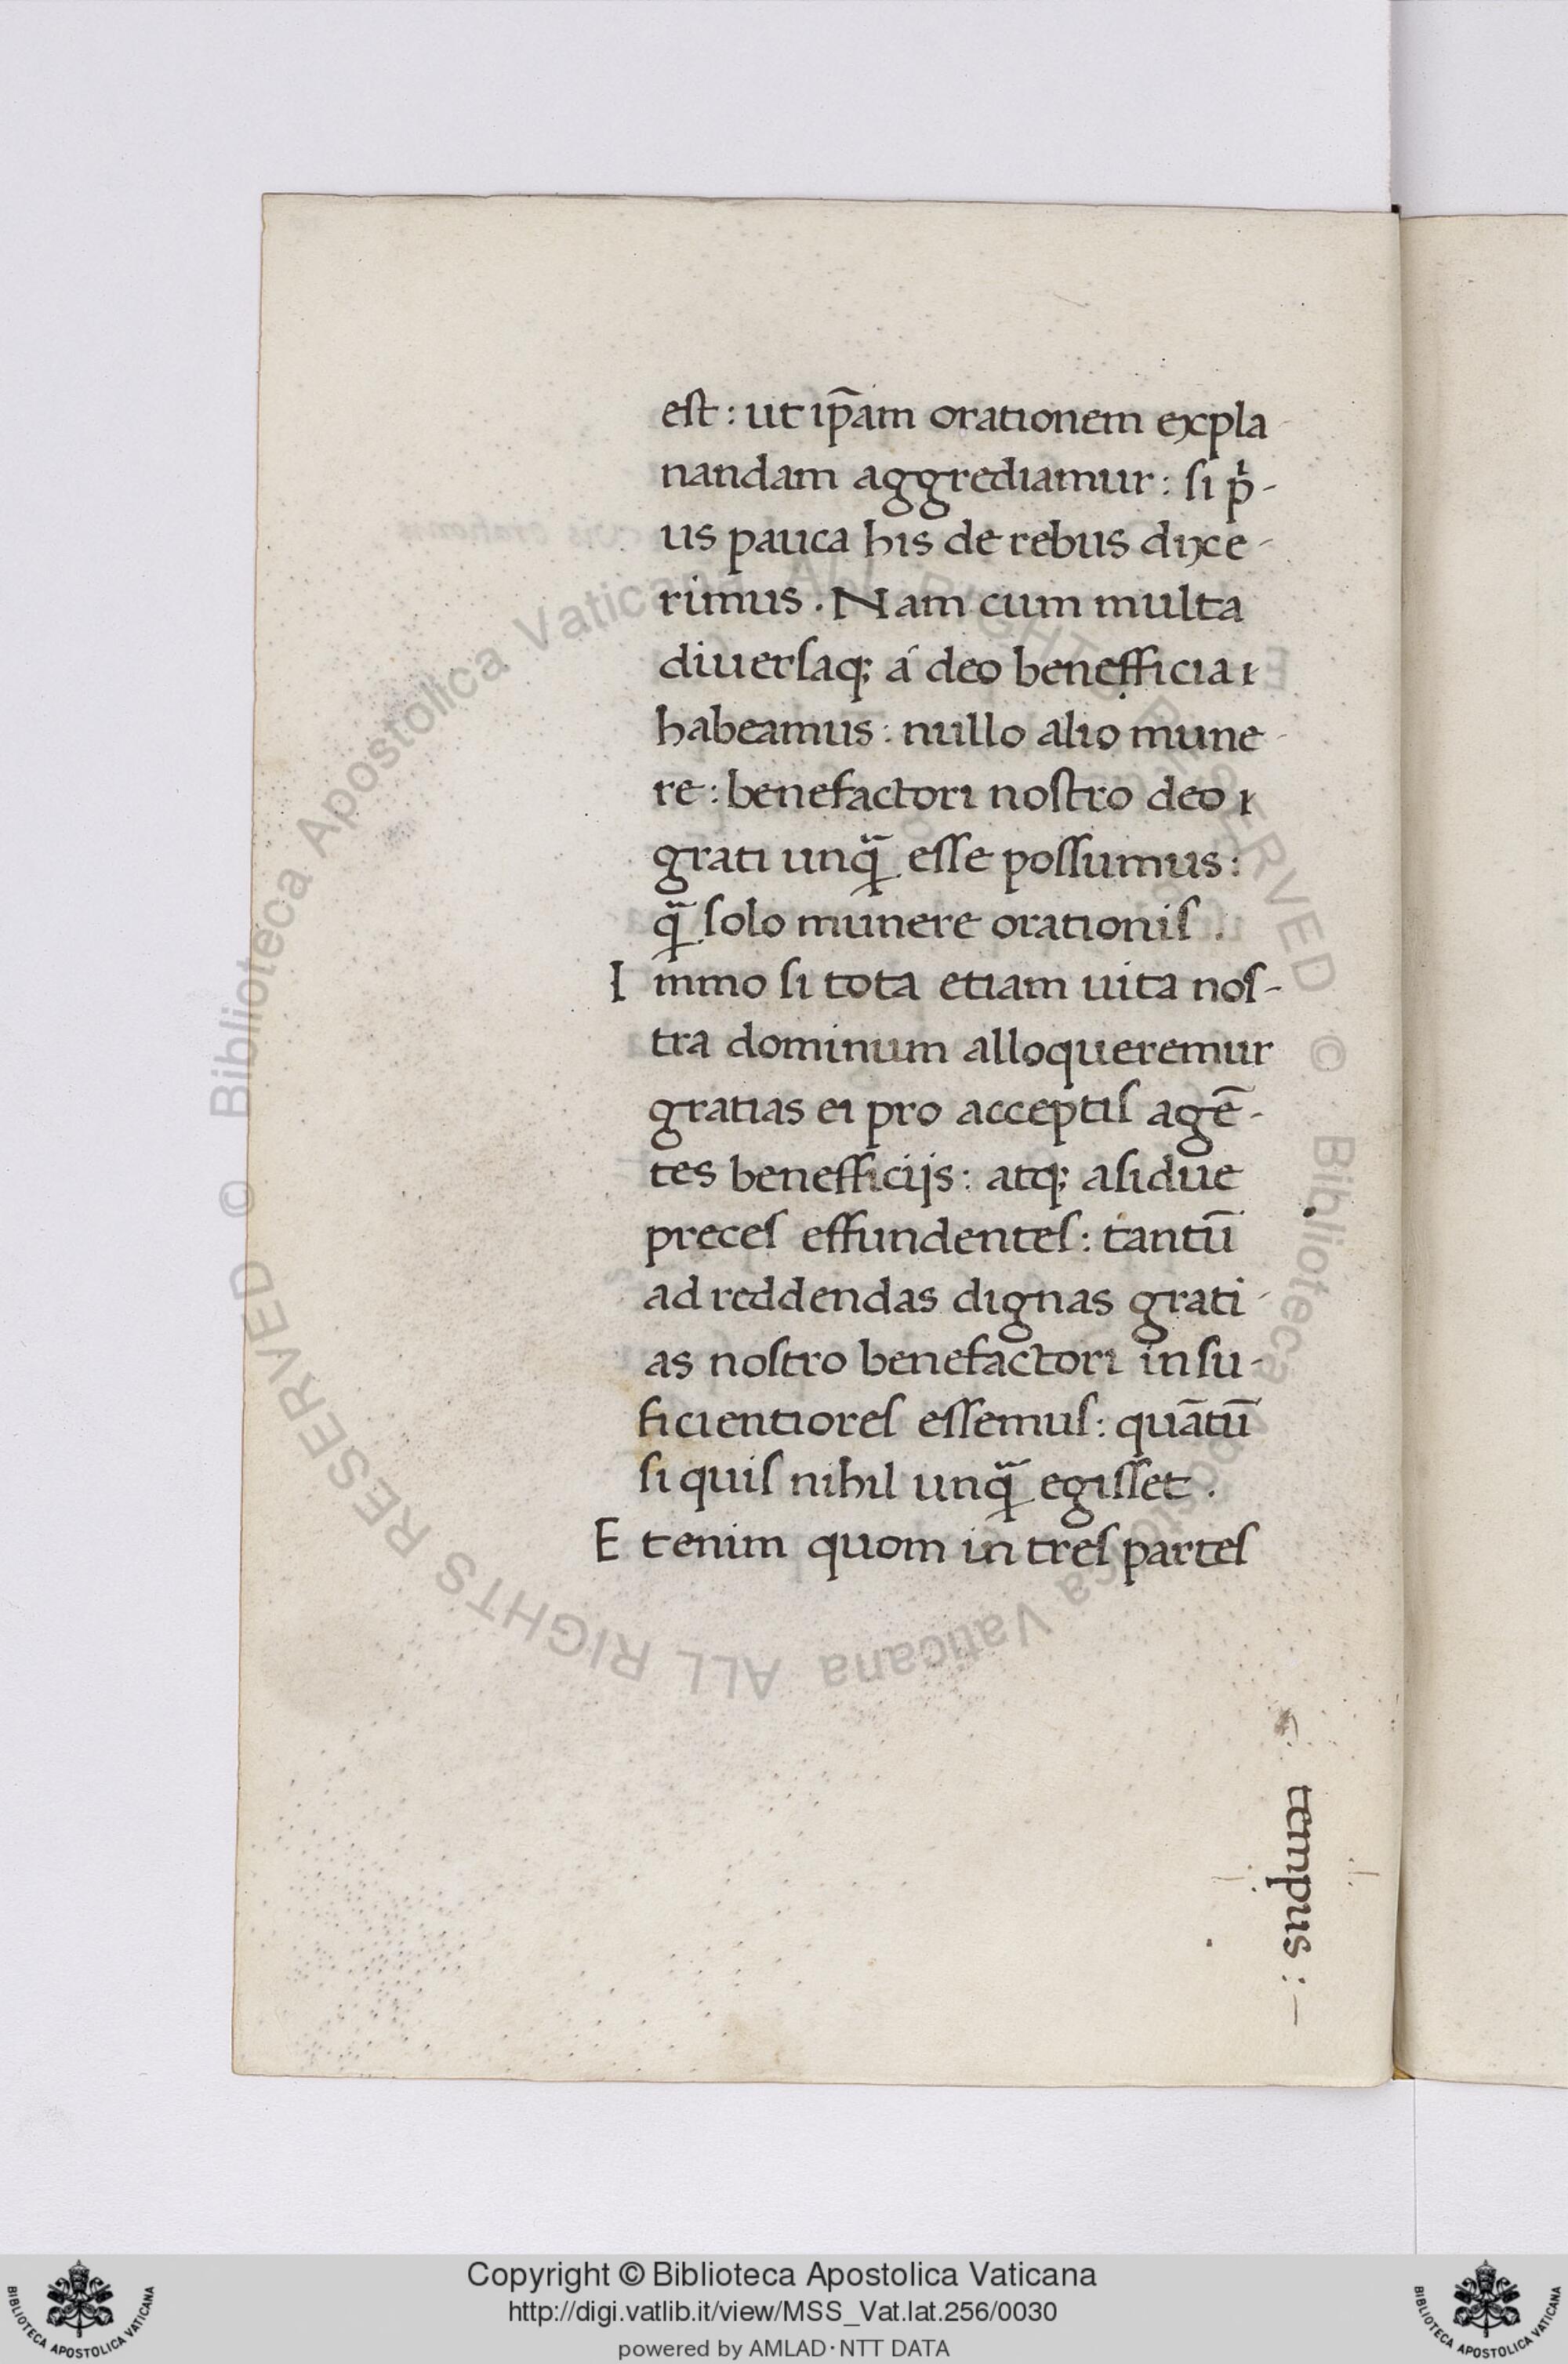 est : ut ip̃am orationem expla
nandam aggrediamur : si pͥ-
us pauca his de rebus dixe-
rimus . Nam cum multa
diuersaq; á deo benefficia ı
habeamus : nullo alio mune-
re : benefactori nostro deo ı
grati unq̃ esse possumus :
q̃ solo munere orationis .
Immo si tota etiam uita nos-
tra dominum alloqueremur
gratias ei pro acceptis agē-
tes benefficijs : atq; asidue
preces effundentes : tantū
ad reddendas dignas grati-
as nostro benefactori insu-
ficientiores essemus : quātū
si quis nihil unq̃ egisset .
Etenim quom in tres partes
tempus : —
© Biblioteca Apostolica Vaticana ALL RIGHTS RESERVED © Biblioteca Apostolica Vaticana ALL RIGHTS RESERVED
Copyright © Biblioteca Apostolica Vaticana
http://digi.vatlib.it/view/MSS_Vat.lat.256/0030
powered by AMLAD · NTT DATA
BIBLIOTECA APOSTOLICA VATICANA
BIBLIOTECA APOSTOLICA VATICANA